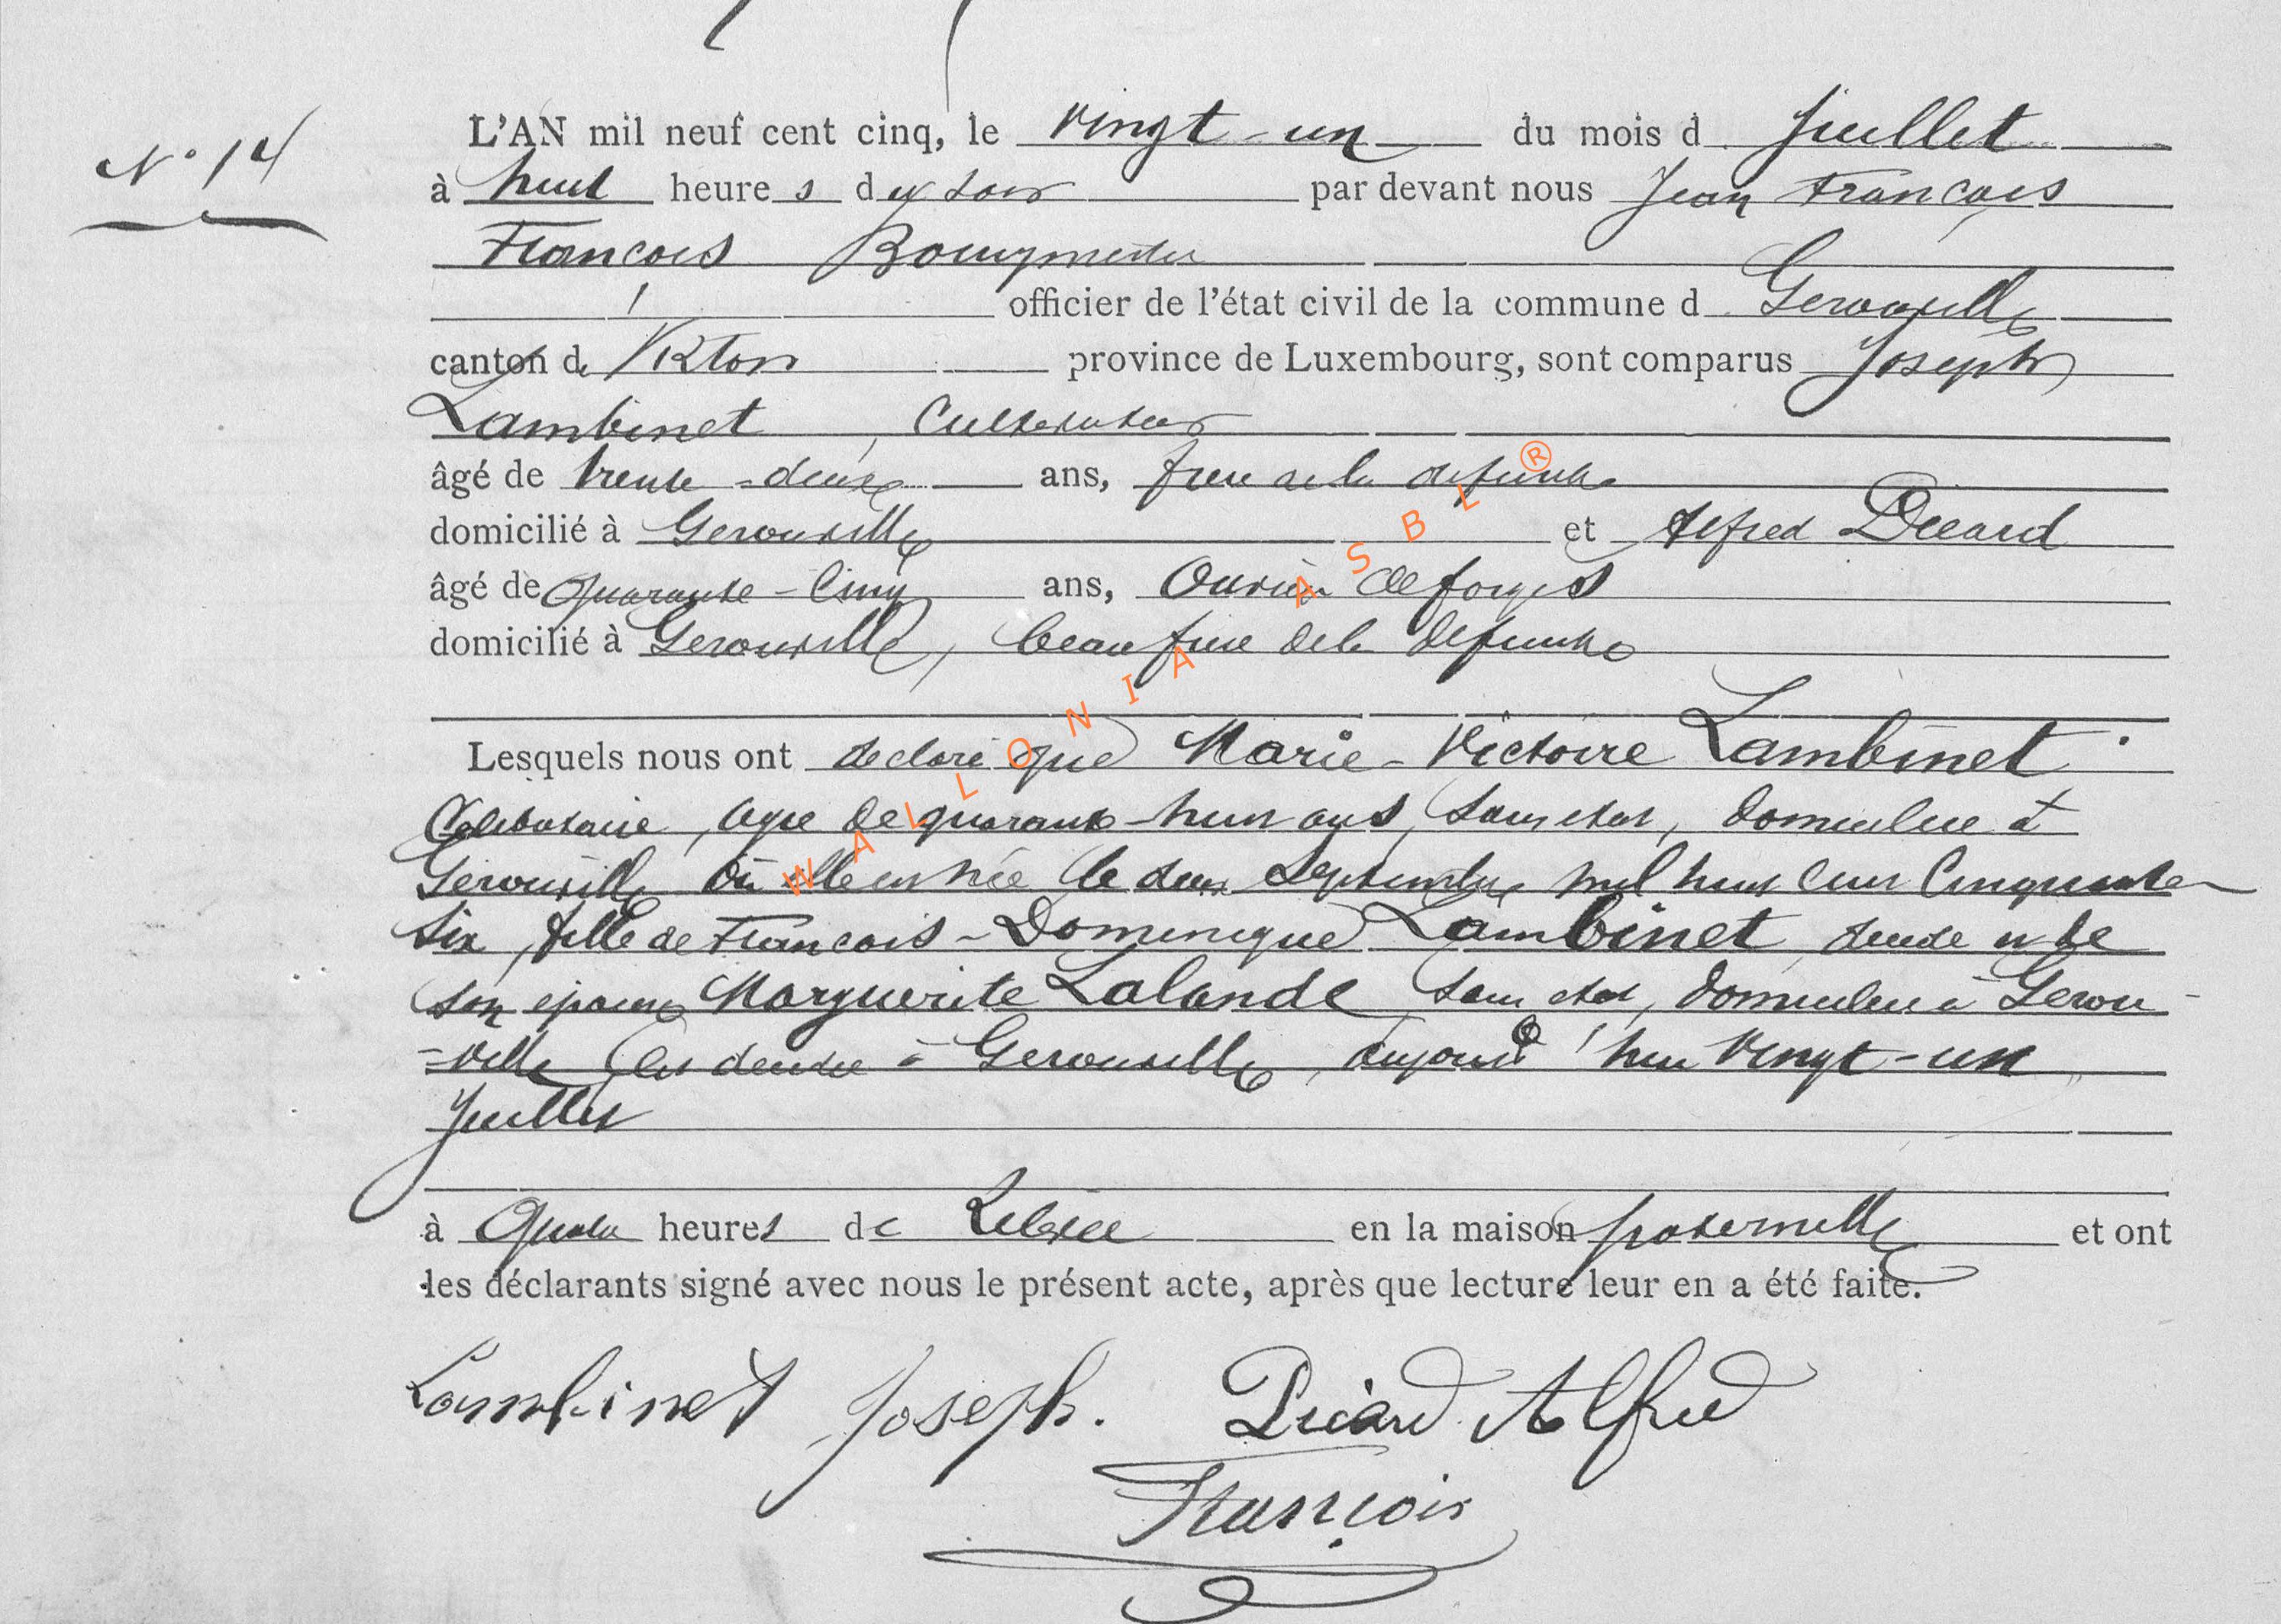 N° 14
L'AN mil neuf cent cinq, le vingt-un du mois d Juillet
à huit heures du soir par devant nous Jean François
François Bourgmestre
officier de l'état civil de la commune d Gerouville
canton de Virton province de Luxembourg, sont comparus Joseph
Lambinet, Cultivateur
âgé de trente-deux ans, frere de la defunte
domicilié à Gerouville et Alfred Picard
âgé de quarante-cinq ans, Ouvrier de forges
domicilié à Gerouville, beau frere de la defunte
Lesquels nous ont declaré que Marie-Victoire Lambinet
Celibataire, agée de quarante-huit ans, sans etat, domiciliée à
Gerouville où elle est née le deux Septembre mil huit cent cinquante
six, fille de François-Dominique Lambinet, decedé et de
son epouse Marguerite Lalande, sans etat, domiciliée à Gerou-
-ville est decedée à Gerouville, aujourd'hui vingt-un
Juillet
à quatre heures de relevée en la maison paternelle et ont
les déclarants signé avec nous le présent acte, après que lecture leur en a été faite.
Lambinet Joseph. Picard Alfred
François
WALLONIA ASBL ®